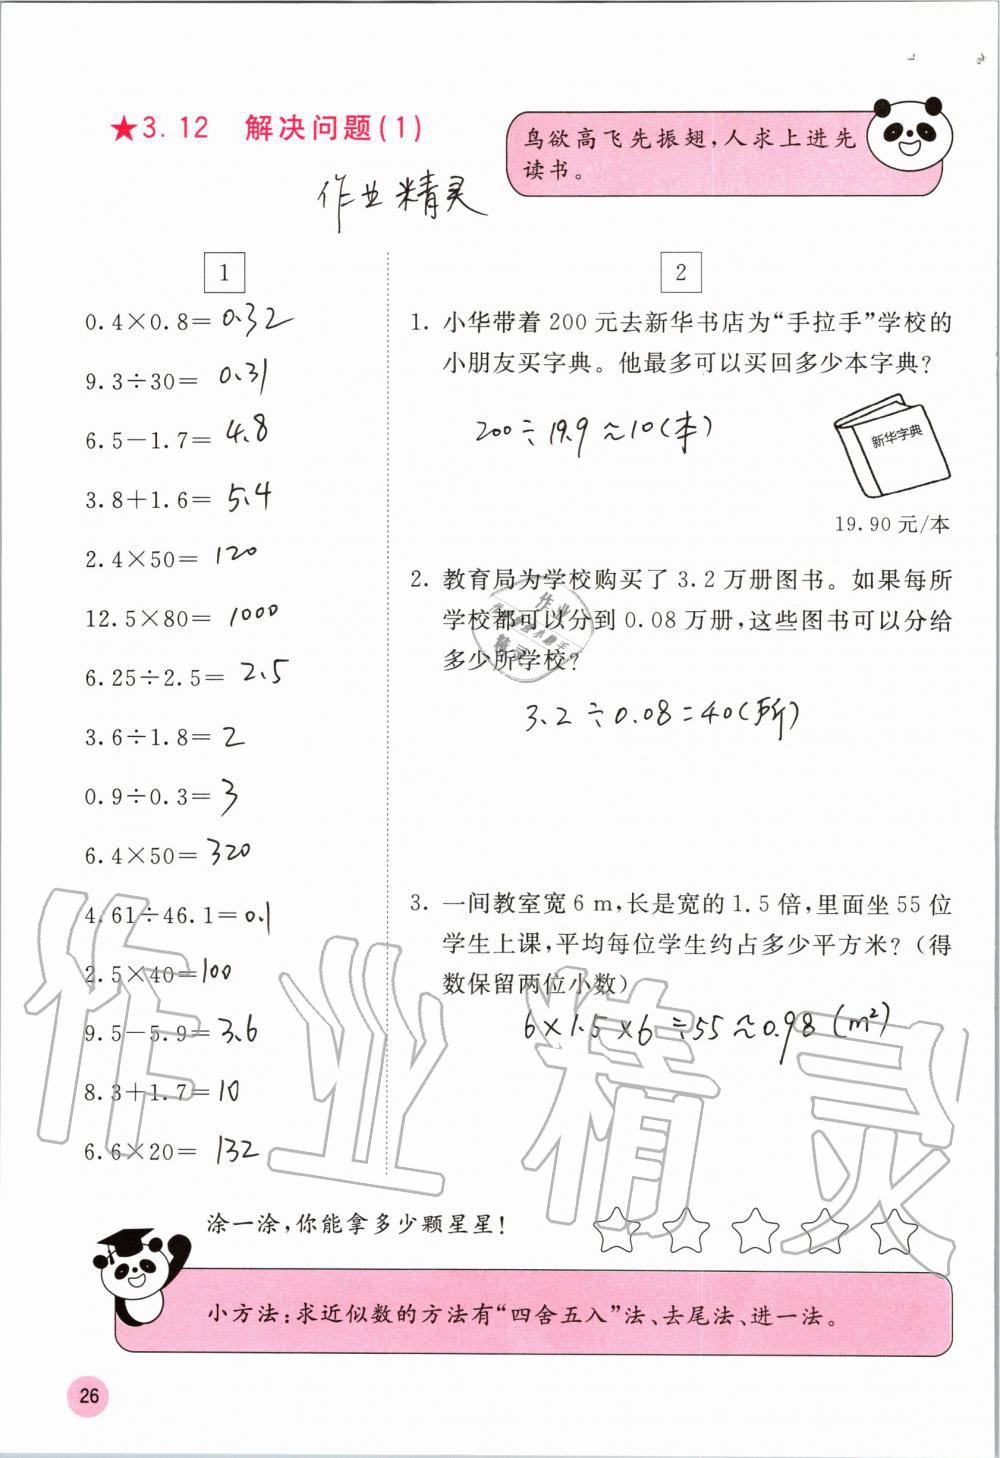 ★3.12 解决问题(1)
鸟欲高飞先振翅,人求上进先
读书。
作业精灵
1
0.4×0.8=0.32
9.3÷30=0.31
6.5-1.7=4.8
3.8+1.6=5.4
2.4×50=120
12.5×80=1000
6.25÷2.5=2.5
3.6÷1.8=2
0.9÷0.3=3
6.4×50=320
4.61÷46.1=0.1
2.5×40=100
9.5-5.9=3.6
8.3+1.7=10
6.6×20=132
2
1. 小华带着200元去新华书店为“手拉手”学校的
小朋友买字典。他最多可以买回多少本字典?
200÷19.9≈10(本)
新华字典
19.90元/本
2. 教育局为学校购买了3.2万册图书。如果每所
学校都可以分到0.08万册,这些图书可以分给
多少所学校?
3.2÷0.08=40(所)
3. 一间教室宽6 m,长是宽的1.5倍,里面坐55位
学生上课,平均每位学生约占多少平方米?(得
数保留两位小数)
6×1.5×6÷55≈0.98(m²)
作业精灵
涂一涂,你能拿多少颗星星!
小方法:求近似数的方法有“四舍五入”法、去尾法、进一法。
26